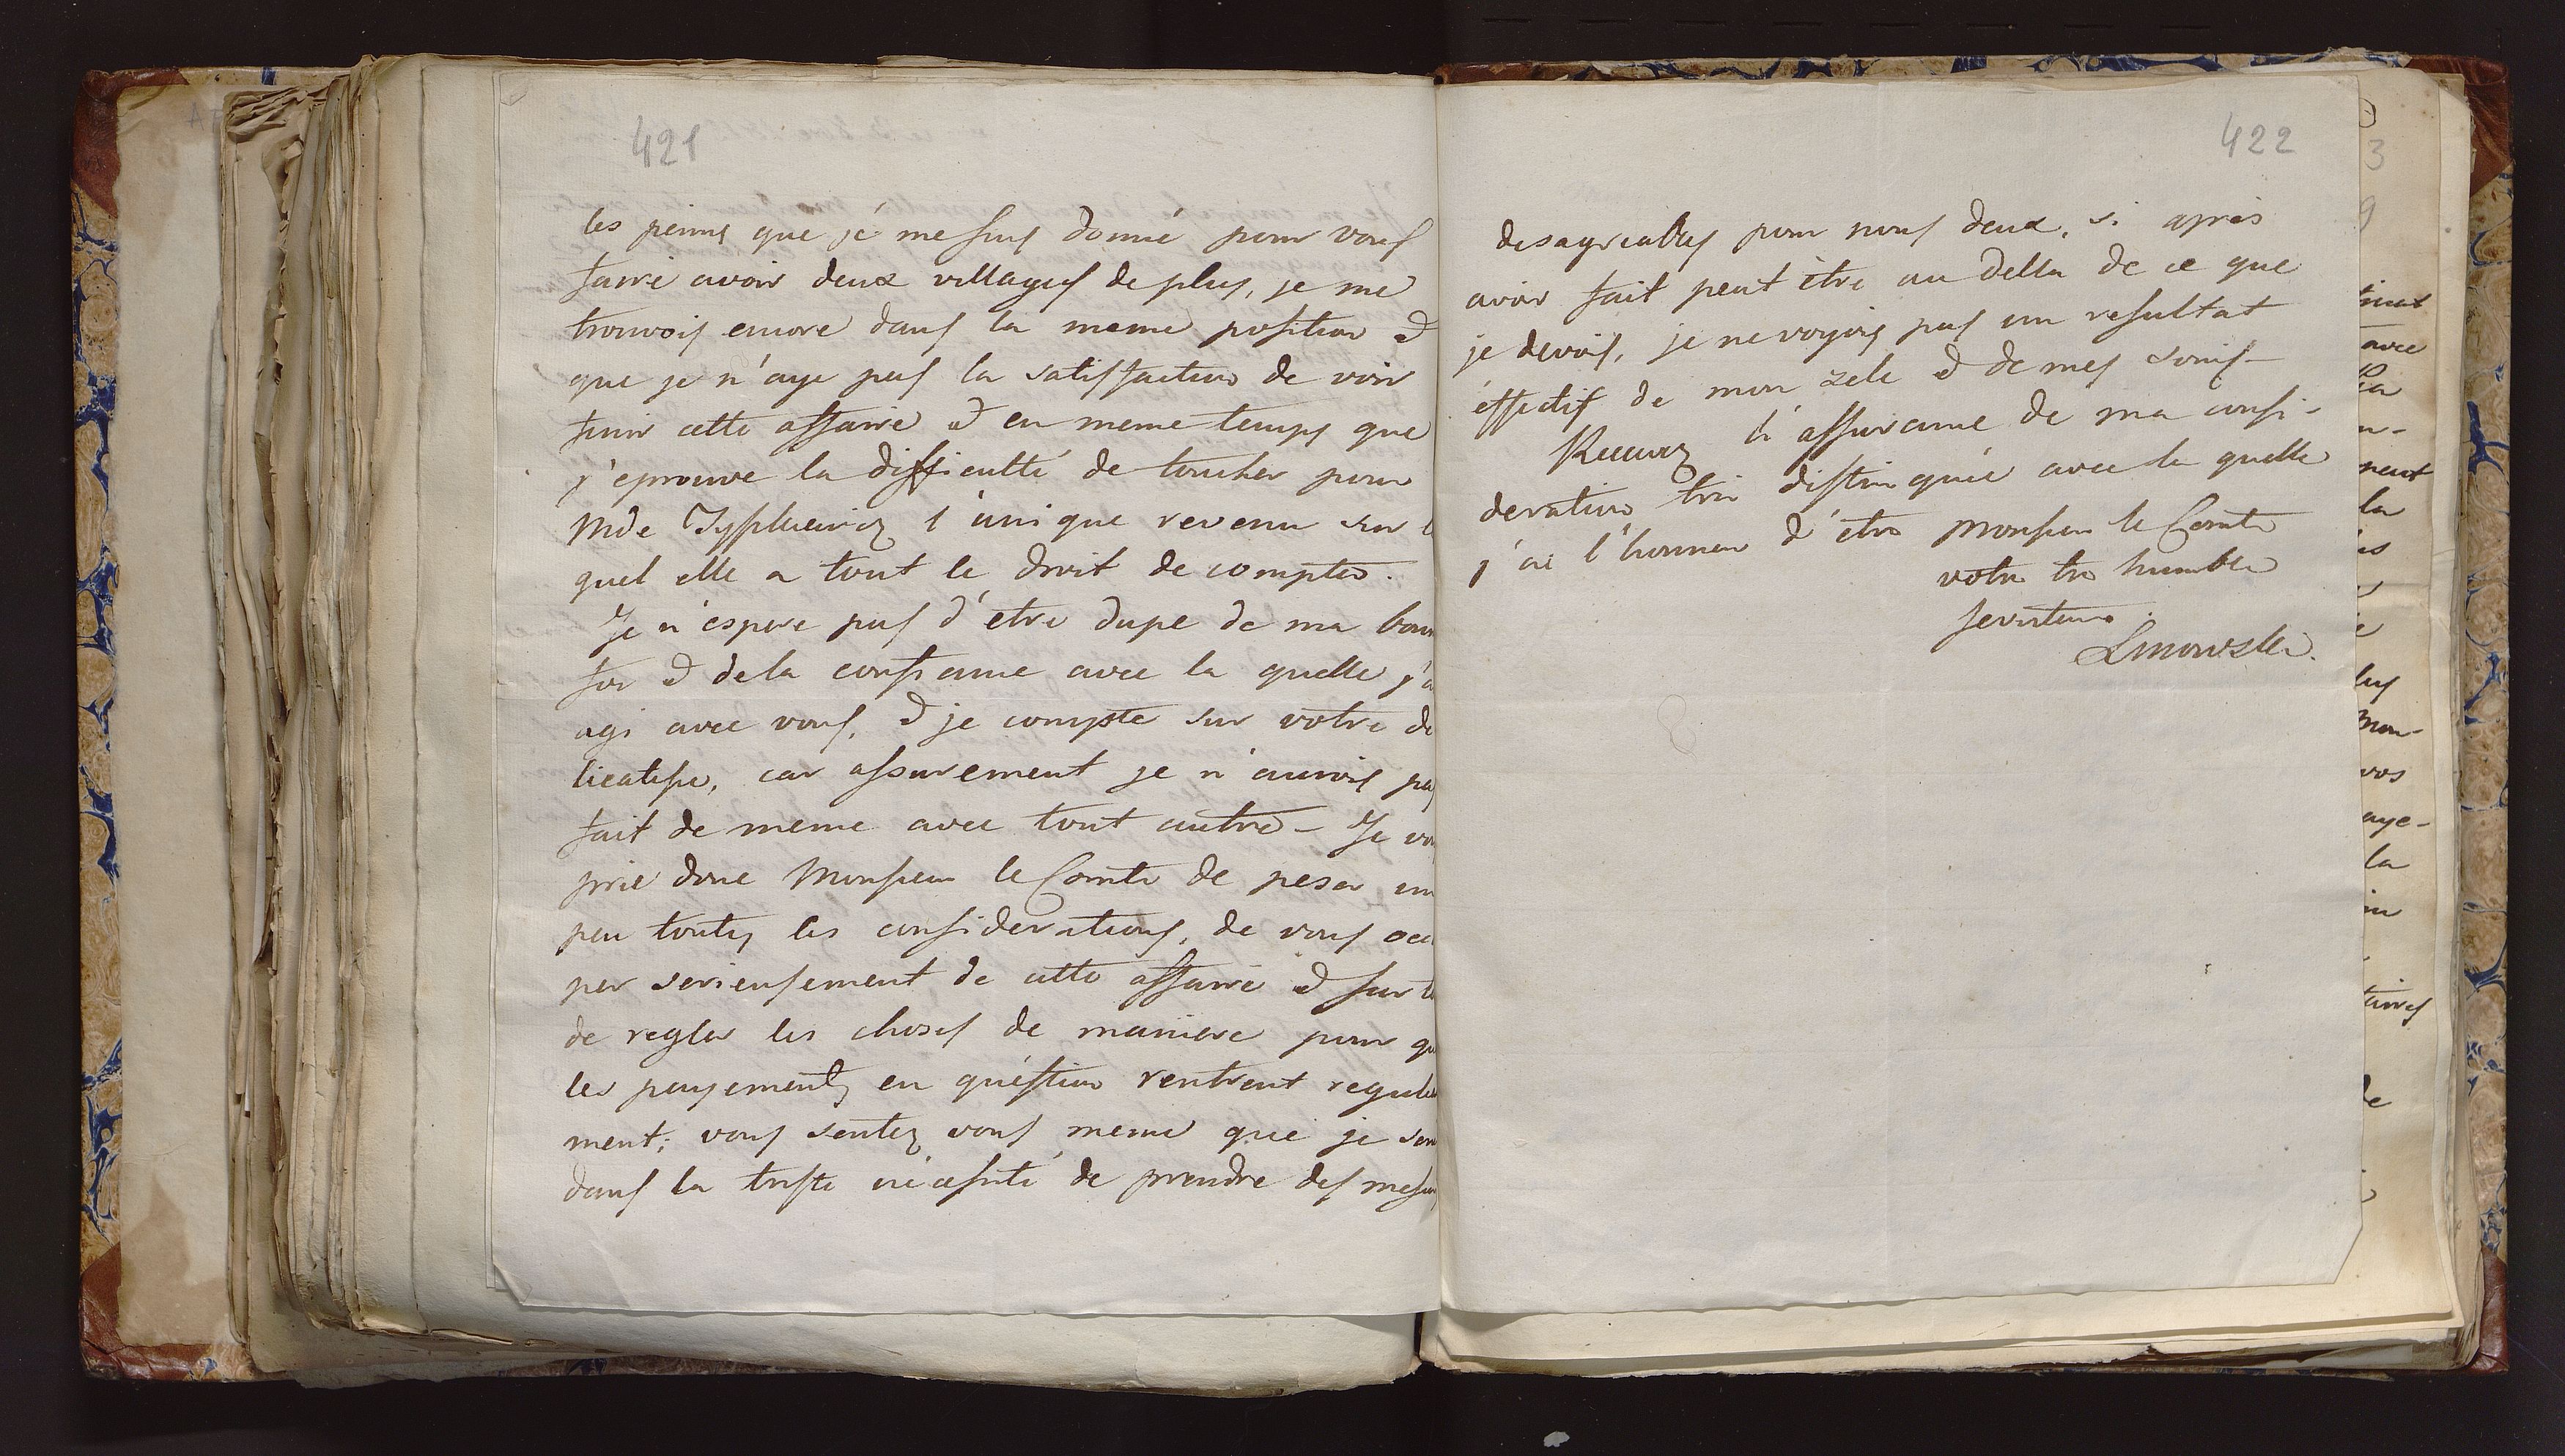 421
les peines que je me suis donné pour vous
faire avoir deux villages de plus, je me
trouvois encore dans la meme position &
que je n'aye pas la satisfaction de voir
finir cette affaire & en meme temps que
j'eprouve la difficulté de toucher pour
Mde l'unique revenu sur le
quel elle a tout le droit de compter.
Je n'espere pas d'etre dupe de ma bon
foi & de la confiance avec la quelle j'a
agi avec vous, & je compte sur votre de
licatesse, car assurement je n'aurois pas
fait de meme avec tout autre - Je vo
prie donc Monsieur le Comte de peser un
peu toutes les considerations, de vous occu
per serieusement de cette affaire & sur t
de regler les choses de maniere pour qu
les payements en quéstion rentrent regule
ment; vous sentez vous meme que je ser
dans la triste nécéssité de prendre des mesur
422
desagreables pour nous deux, si après
avoir fait peut être au della de ce que
je devois, je ne voyois pas un resultat
éffectif de mon zele & de mes soins -
Recevez l'assurance de ma consi-
deration tres distinquée avec la quelle
j'ai l'honneur d'etre Monsieur le Comte
votre tres humble
serviteur
Linowski.
3
9
avec
la
n-
la
Mon-
vos
aye-
la
de